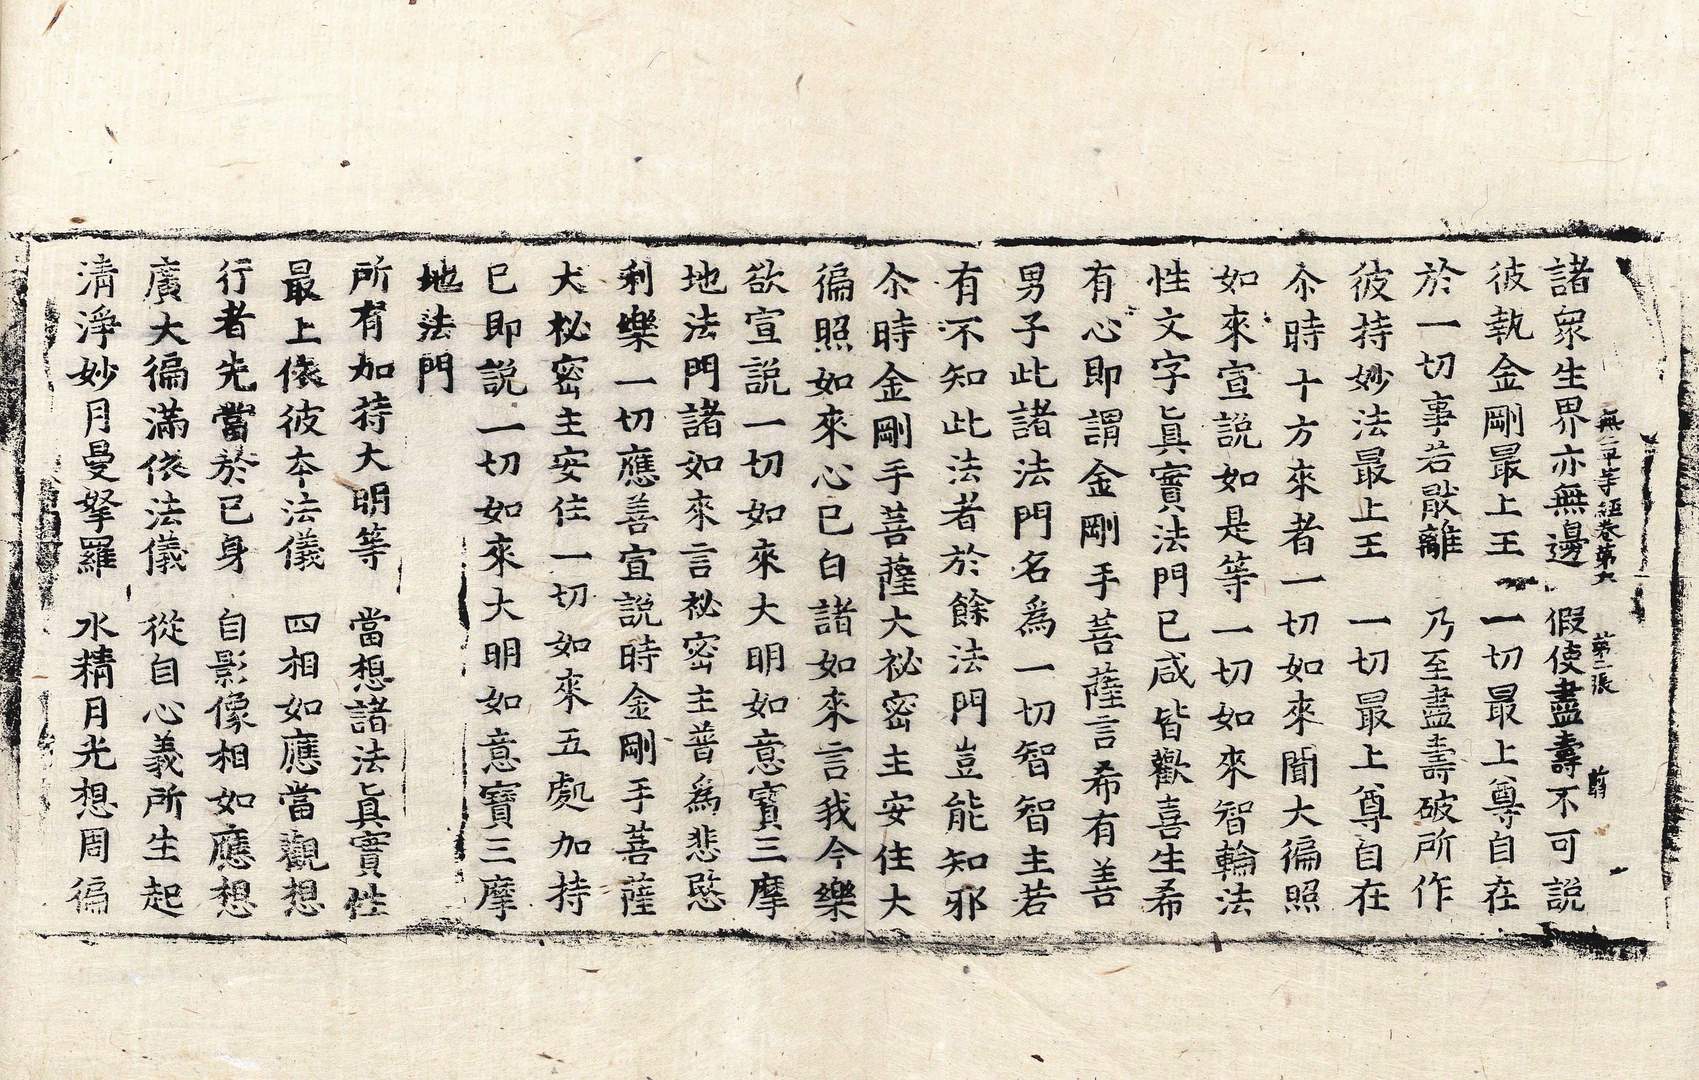 無二平等經卷第六 第二張
諸衆生界亦無邊 假使盡壽不可説
彼執金剛最上王 一切最上尊自在
於一切事若猒離 乃至盡壽破所作
彼持妙法最上王 一切最上尊自在
尒時十方來者一切如來聞大徧照
如來宣説如是等一切如來智輪法
性文字眞實法門已咸皆歡喜生希
有心即謂金剛手菩薩言希有善
男子此諸法門名爲一切智智主若
有不知此法者於餘法門豈能知邪
尒時金剛手菩薩大祕密主安住大
徧照如來心已白諸如來言我今樂
欲宣説一切如來大明如意寳三摩
地法門諸如來言祕密主普爲悲愍
利樂一切應善宣説時金剛手菩薩
大祕密主安住一切如來五處加持
已即説一切如來大明如意寳三摩
地法門
所有加持大明等 當想諸法眞實性
最上依彼本法儀 四相如應當觀想
行者先當於已身 自影像相如應想
廣大徧滿依法儀 從自心義所生起
清淨妙月曼拏羅 水精月光想周徧